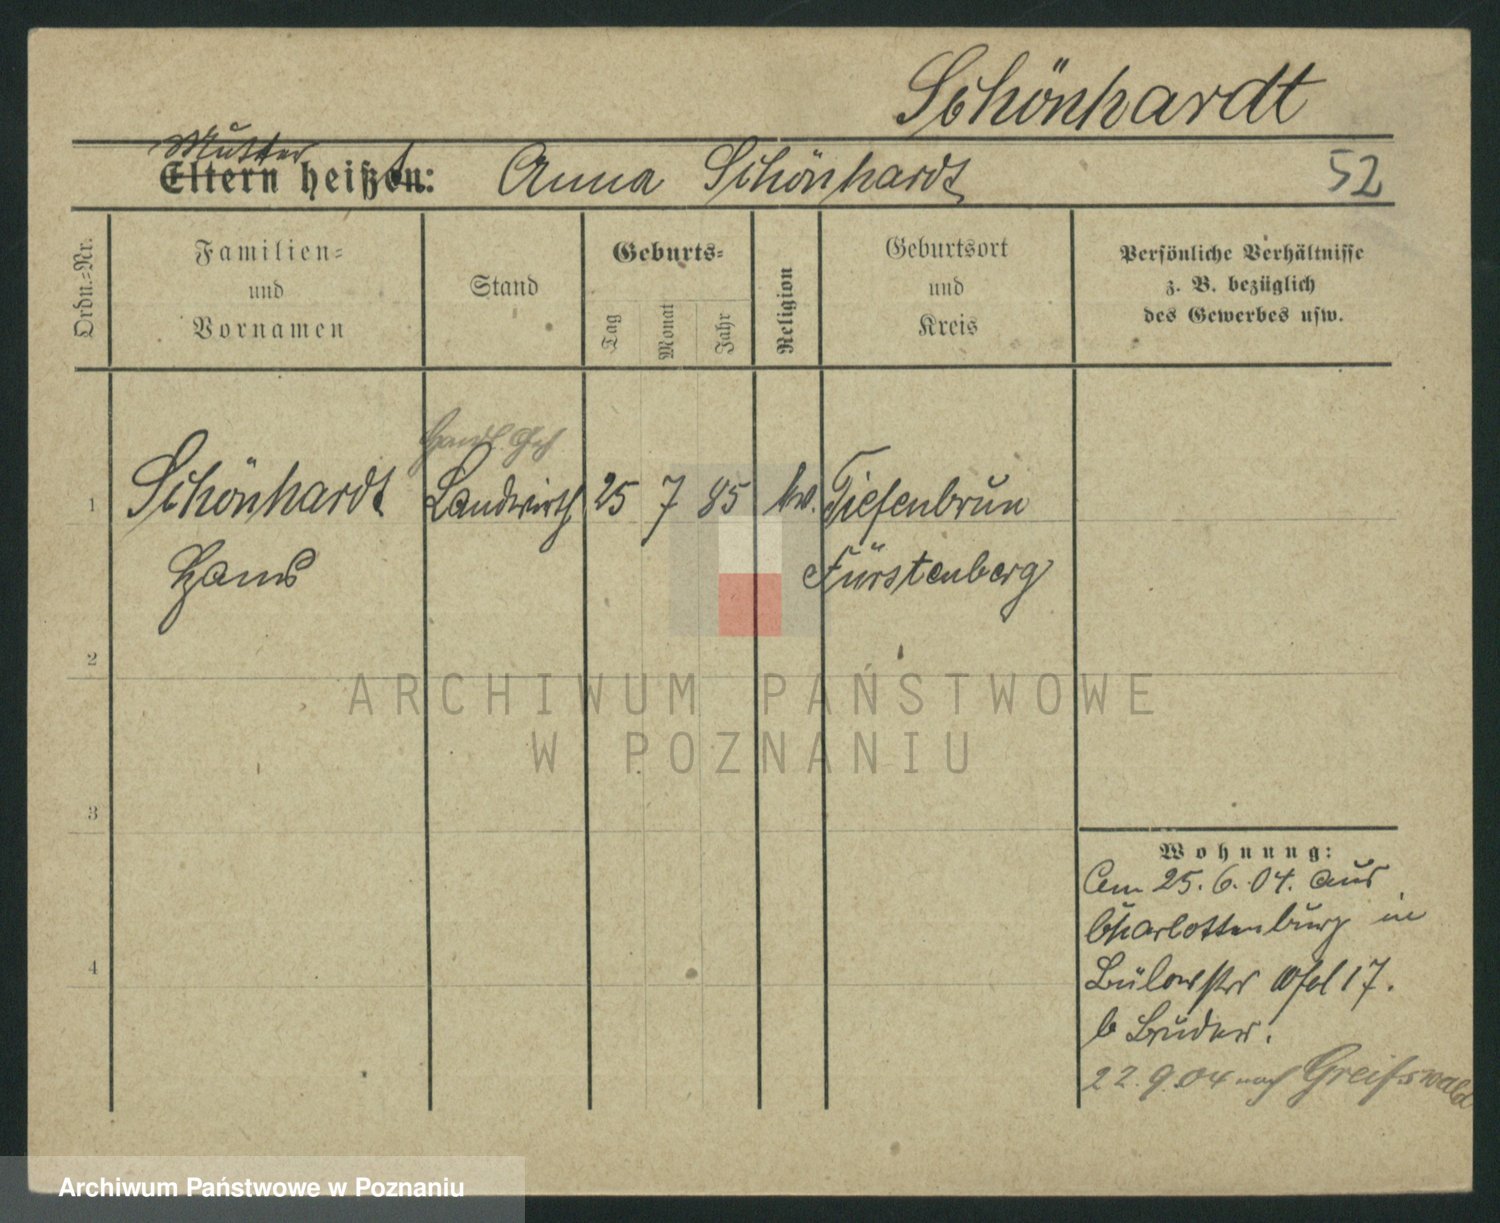 Schönhardt
Mutter
Eltern heißen: Anna Schönhardt 52
Ordn.=Nr.
Familien=
und
Vornamen
Stand
Geburts=
Tag
Monat
Jahr
Religion
Geburtsort
und
Kreis
Persönliche Verhältnisse
z. B. bezüglich
des Gewerbes usw.
Handl. Geh
1 Schönhardt Landwirth 25 7 85 kv. Tiefenbrun
Hans Fürstenberg
2
3
4
ARCHIWUM PAŃSTWOWE
W POZNANIU
Wohnung:
Am 25.6.04. aus
Charlottenburg in
Bülowstr 17.
b Bruder.
22.9.04 nach Greifswald
Archiwum Państwowe w Poznaniu